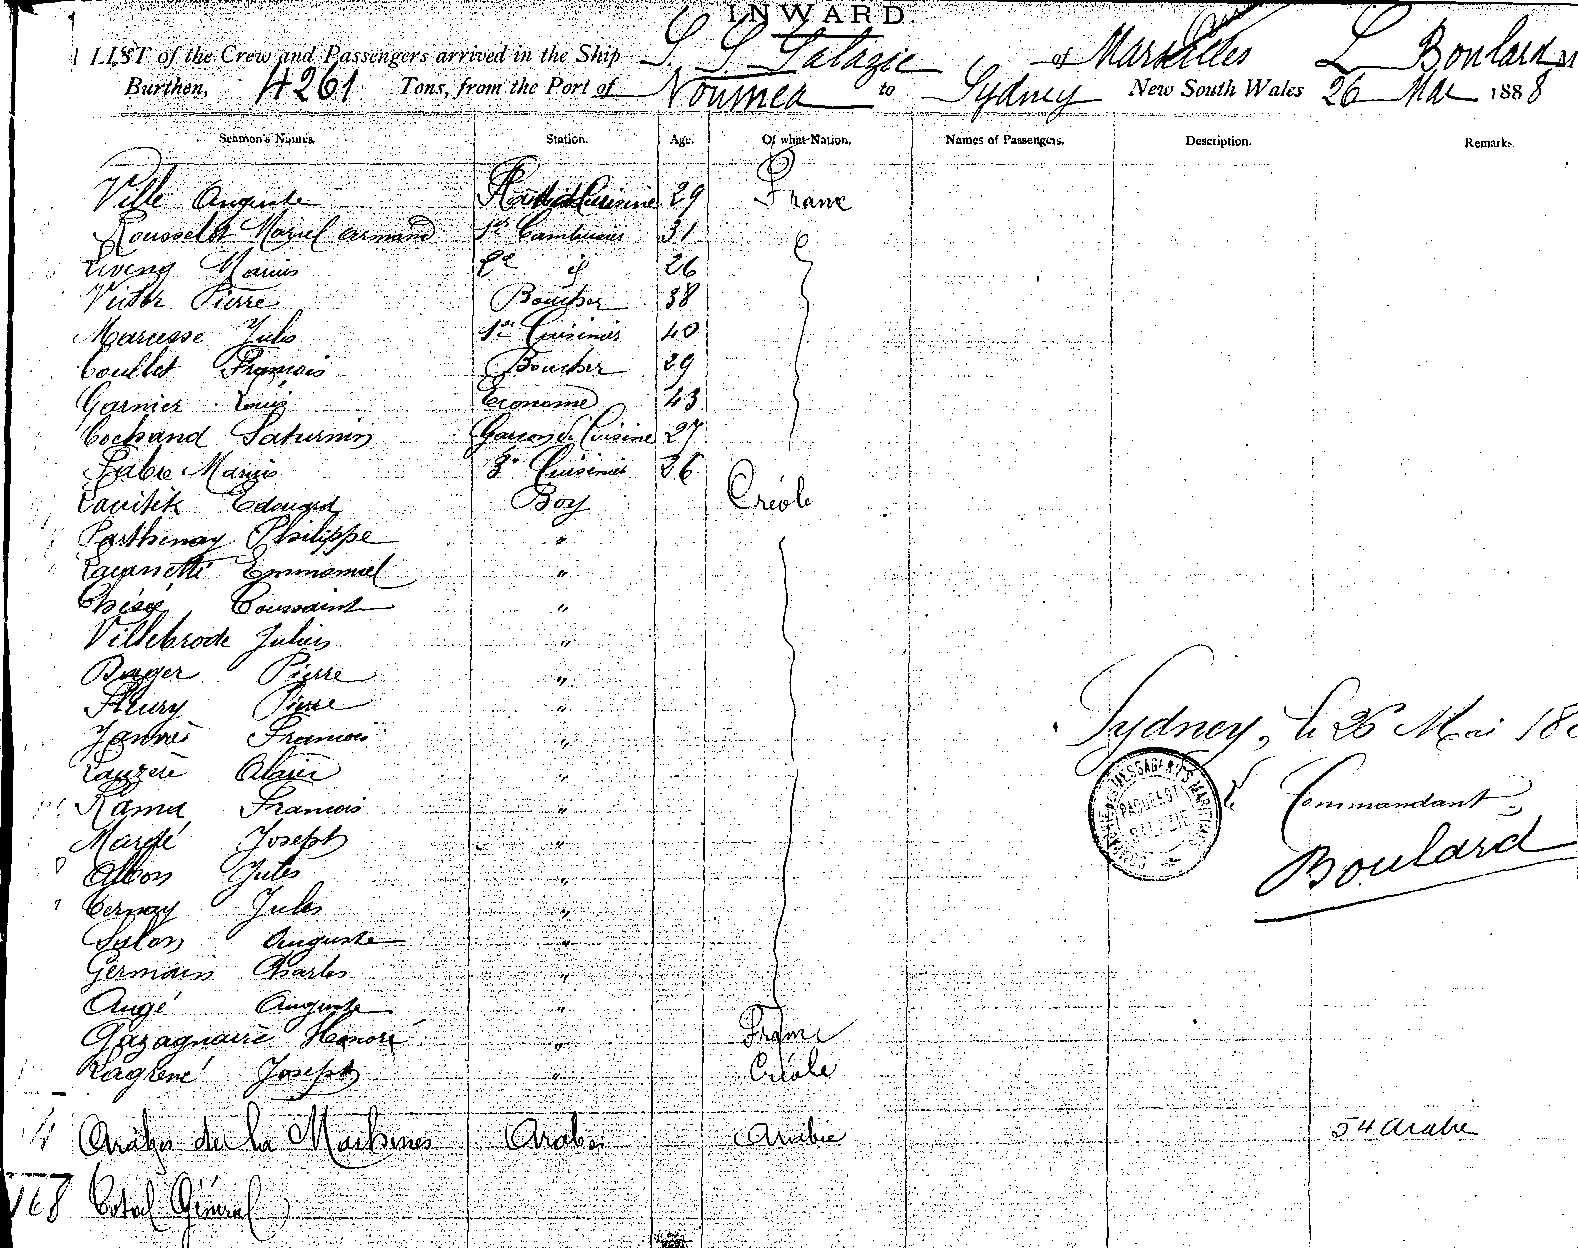 INWARD.
LIST of the Crew and Passengers arrived in the Ship S. S. Salazie of Marseilles L Boulard
Burthen, 4261 Tons, from the Port of Noumea to Sydney New South Wales 26 Mai 1888
Seamen's Names. Station. Age. Of what Nation. Names of Passengers. Description. Remarks.
Ville Auguste Cuisine 29 France
Rousselot Marcel Armand 1er Cambusier 31
Liveng Marius 2e id 26
Victor Pierre Boucher 38
Marcesse Jules 1er Cuisinier 40
Coullet François Boucher 29
Garnier Louis Econome 43
Cochand Saturnin Garçon de Cuisine 27
Fabre Marius 3e Cuisinier 26
Edouard Boy Créole
Parthenay Philippe "
Emmanuel "
Toussaint "
Villebrode Julien "
Bager Pierre "
Fleury Pierre "
François "
Lauzère "
Rama François "
Mardé Joseph "
Albon Jules "
Cernay Jules "
Salon Auguste "
Germain Charles "
Augé Auguste "
Gazagnaire Honoré " France
Lagrené Joseph " Créole
Arabes de la Machines Arabes Arabie 54 Arabie
168 Total Général
Sydney, le 26 Mai 188
MESSAGERIES MARITIMES
PAQUEBOT
SALAZIE
Le Commandant,
Boulard